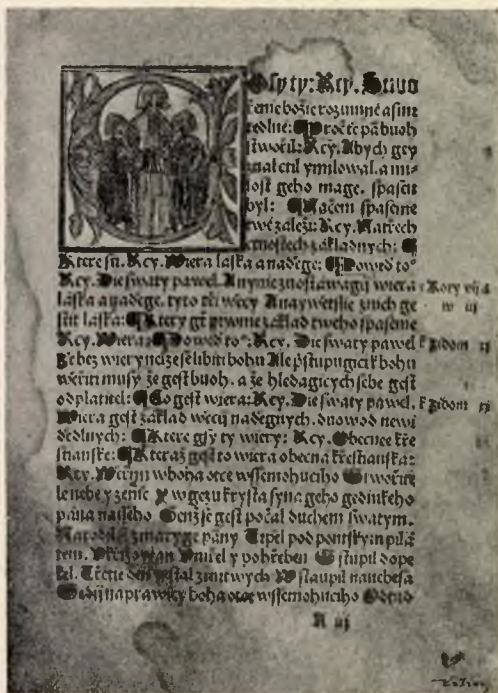 Gsy ty: Rcy. Stwo
řenie božie rozumne a smr
tedlne: Proč tě pā buoh
stwořil: Rcy. Abych gey
znal ctil y milowal. a mi-
lost geho mage. spasen
byl: Načem spasenie
twé záležij: Rcy. Na třech
ctnostech základnych:
Ktere su. Rcy. Wiera laska a nadege: Powěd to°
Rcy. Die swaty pawel. A nynie zuostawagij wiera
laska a nadege. tyto tři wěcy A naywetssie z nich ge
stit laska: Ktery gt prwnie základ tweho spasenie
Rcy. Wiera: Powěd to°: Rcy. Die swaty pawel
Že bez wiery neize se libiti bohu Ale přstupugicí k bohu
wěřiti musy že gest buoh. a že hledagicych sebe gest
odplatitel: Co gest wiera: Rcy. Die swaty pawel.
Wiera gest základ wěcij nadegnych. duowod newi
dedlnych: Ktere gsy ty wiery: Rcy. Obecnee kře
stianske: Kteraž gest to wiera obecna křestianska:
Rcy. Wěřijm w boha otce wssemohuciho Stwořite
le nebe y zemie y w gezu krysta syna geho gedinkeho
pána nasseho Genž se gest počal duchem swatym.
Narodil se z maryge pany Trpel pod pontskym pilá
tem. Vkřižowan Vmřel y pohřeben Sstupil do pe
kel. Třetie den wstal z mrtwych Wstaupil na nebesa
Sedij na prawicy boha otce wssemohuciho Odtud
k židom xj
k židom xj
A iij